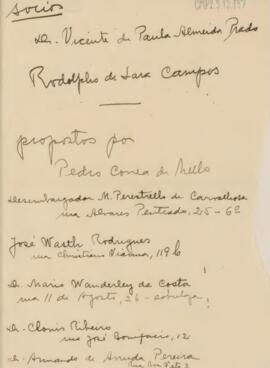 socios
Dr. Vicente de Paula Almeida Prado
Rodolpho de Lara Campos
propostos por
Pedro Correa de Mello
Desembargador M. Perestrello de Carvalhosa
rua Alvares Penteado, 25-6º
José Wasth Rodrigues
rua Christiano Vianna, 119b
D. Mario Wanderley da Costa
rua 11 de Agosto, 26 -
Dr. Clovis Ribeiro
rua José Bonifacio, 12
Dr. Armando de Arruda Pereira